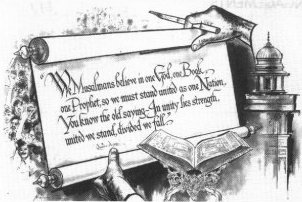 We Musalmans believe in one God, one Book,
one Prophet, so we must stand united as one Nation,
You know the old saying, In unity lies strength,
united we stand, divided we fall.